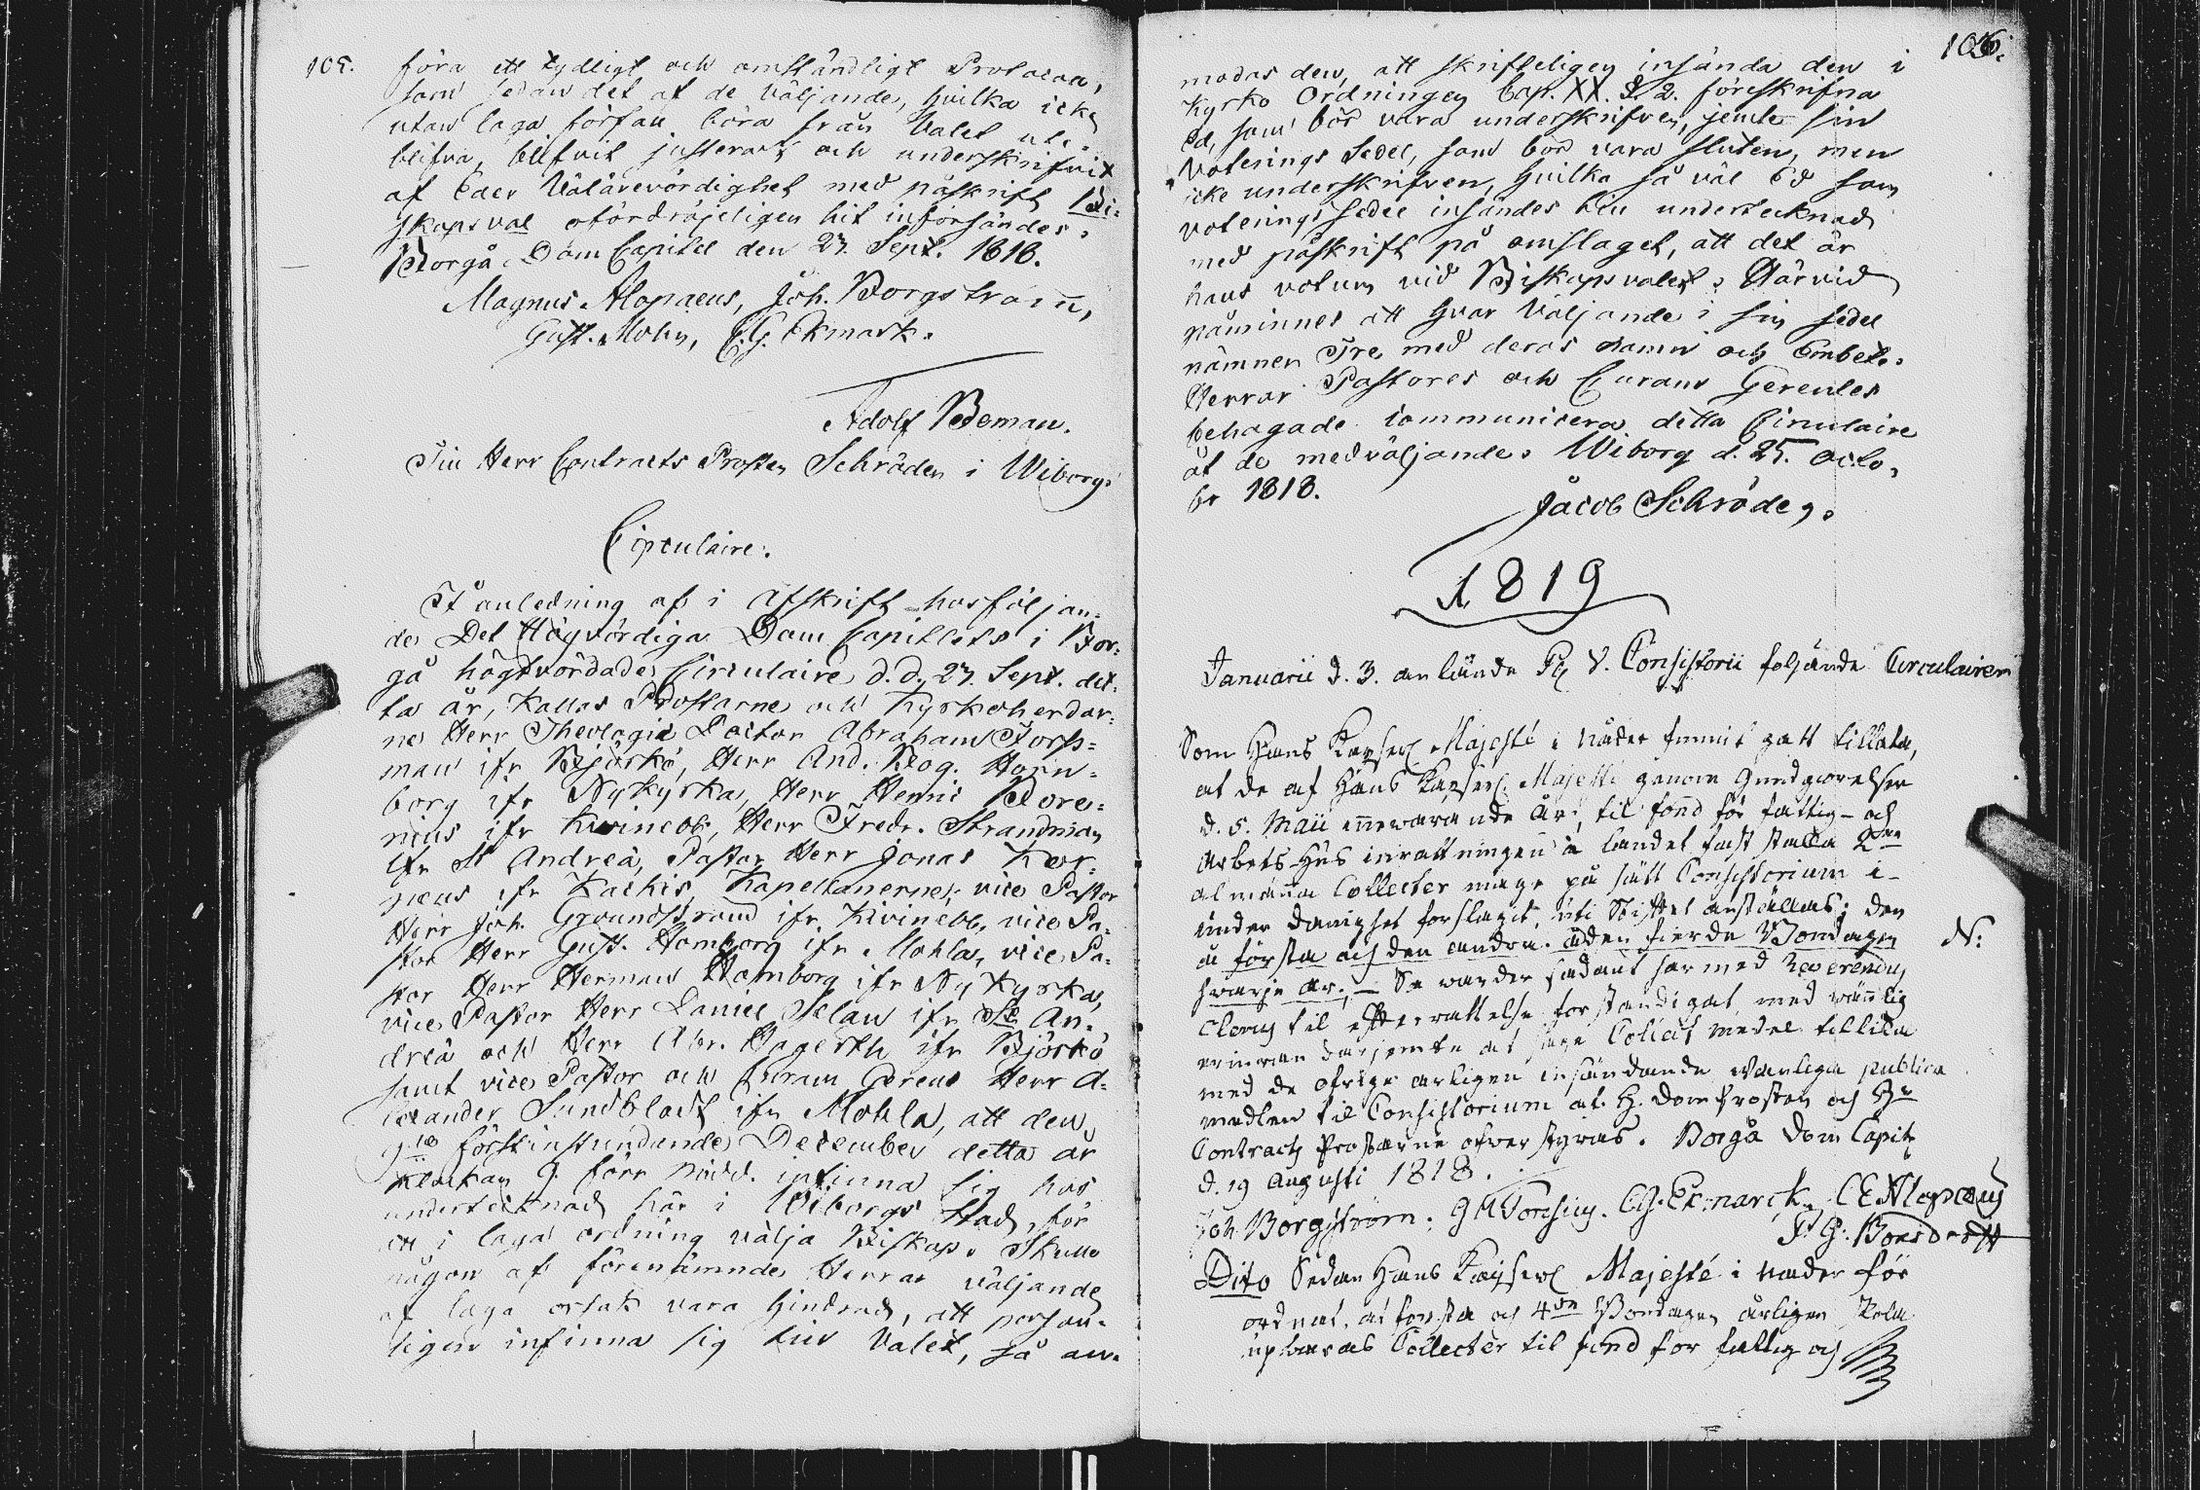 105.
föra ett tydligt och omständligt Protocoll,
som sedan det af de Väljande, hvilka icke
utan laga förfall böra från Valet ute-
blifva, blifvit justeradt och underskrifvit
af Eder Välärevördighet med påskrift Bi-
skopsval ofördröjeligen hit införsändes.
Borgå Dom Capitel den 23. Sept. 1818.
Magnus Alopaeus, Joh. Borgström,
Gust. Molin, C.G. Ekmark.
Adolf Beman.
Till Herr Contracts Prosten Schröder i Wiborg.
Circulaire.
I anledning af i Afskrift hosföljan-
de Det Högvördiga Dom Capitlets i Bor-
gå högtvördade Circulaire d.d. 23. Sept. det-
ta år, kallas Prostarne och Kyrkoherdar-
ne Herr Theologie Doctor Abraham Forss-
man ifr Björkö, Herr And. Rog. Horn-
borg ifr Nykyrka, Herr Henric Bore-
nius ifr Kivinebb, Herr Fredr. Strandman
ifr St Andreá, Pastor Herr Jonas
ifr Kackis, Kapellanerne, vice Pastor
Herr Joh. Grundstrand ifr Kivinebb, vice Pa-
stor Herr Gust. Homborg ifr Mohla, vice Pa-
stor Herr Herman Homborg ifr Ny Kyrka,
vice Pastor Herr Daniel Selan ifr St An-
dreá och Herr Abr. Hagerth ifr Björkö
samt vice Pastor och Curam Gerens Herr A-
lexander Sundbladt ifr Mohla, att den
förstinstundande December detta år
klockan 9. förr midd. infinna sig hos
undertecknad här i Wiborgs Stad, för
att i laga ordning välja Biskop. Skulle
någon af förenämnde Herrar väljande
af laga orsak vara hindrad, att person-
ligen infinna sig till Valet, så an-
106.
modas den, att skrifteligen insända den i
Kyrko Ordningen Cap. XX. §. 2. föreskrifna
Ed, som bör vara underskrifven, jemte sin
Voterings Sedel, som bör vara sluten, men
icke underskrifven, hvilka så väl Ed som
voteringssedel insändes till undertecknad
med påskrift på omslaget, att det är
hans votum vid Biskopsvalet. Härvid
påminnes att hvar Väljande i sin sedel
nämner Tre med deras namn och Embete.
Herrar Pastores och Curam Gerentes
behagade communicera detta Circulaire
åt de medväljande. Wiborg d. 25. Octo-
br 1818.
Jacob Schröder.
1819
Januarii d. 3. anlände V. Consistorii foljande Circulairer
Som Hans Kayserl Majesté i nåder funnit godt tillåta,
at de af Hans Kayserl. Majesté genom Kundgiörelsen
d. 5. Maii innevarande år, til fond för fattig- och
arbets-Hus inrättningen i landet fastställda 2ne
almänna Collecter måge på sätt Consistorium i
underdånighet förslagit, uti Stiftet anställas; den
ena första och den andra fierde Böndagen
hvarje år; — Så warder sådant har med Reverendus
Clerus til efterrättelse forständigat, med wänlig
erinran darjemte at Collect medel tillika
med de öfrige årligen insändande wanliga publica
medlen til Consistorium af H. Dom Prosten och Hr
Contracts Prostarne öfverstyras. Borgå Dom Capitl
d. 19 Augusti 1818.
Joh Borgström. G M Forssius. C.G. Ekmarck, C E Alopaeus
F. G. Borsdorff
N:
Dito Sedan Hans Kayserl Majesté i nåder för
ordnat, at första och 4de Böndagen årligen skola
upbäras Collecter til fond for fattig och